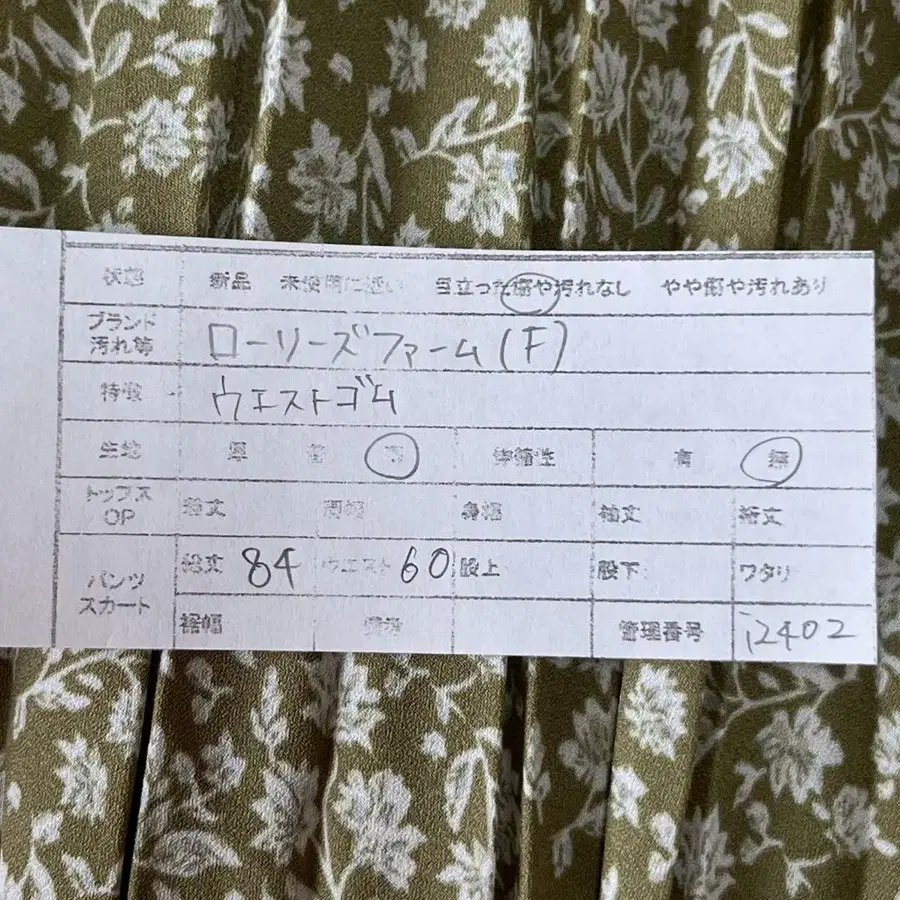 状態 新品 未使用に近い 目立った傷や汚れなし やや傷や汚れあり
ブランド
汚れ等 ローリーズファーム(F)
特徴 ウエストゴム
生地 厚 普 薄 伸縮性 有 無
トップス
OP 着丈 肩幅 身幅 袖丈 裄丈
パンツ
スカート 総丈 84 ウエスト 60 股上 股下 ワタリ
裾幅 管理番号 i2402